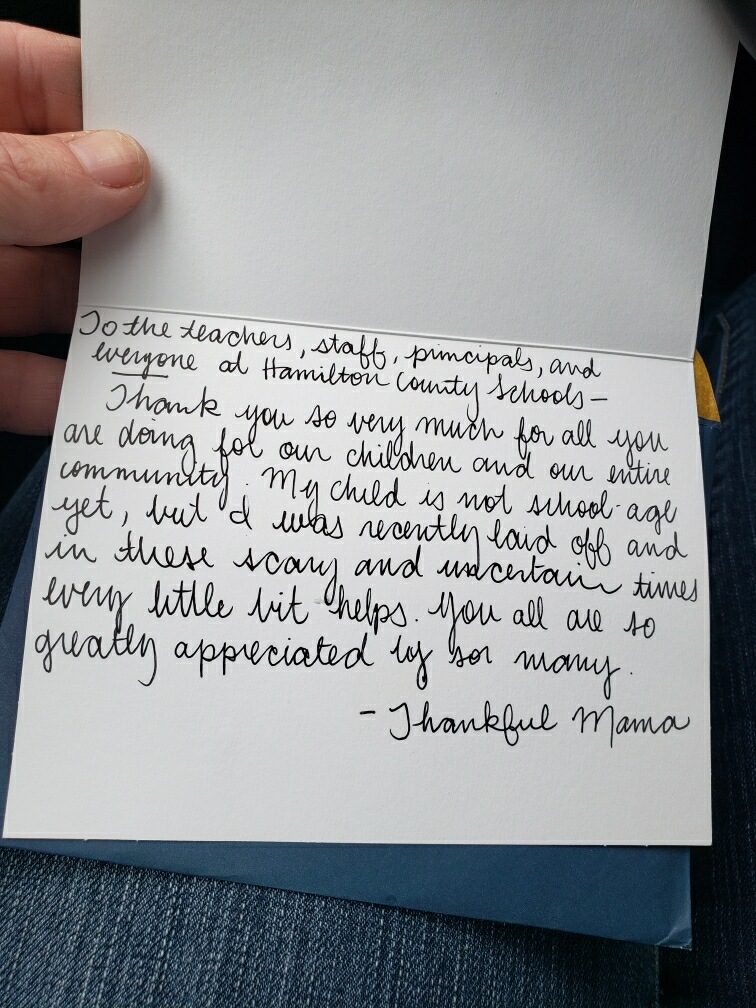 To the teachers, staff, principals, and
everyone at Hamilton County Schools -
Thank you so very much for all you
are doing for our children and our entire
community. My child is not school-age
yet, but I was recently laid off and
in these scary and uncertain times
every little bit helps. You all are so
greatly appreciated by so many.
- Thankful Mama